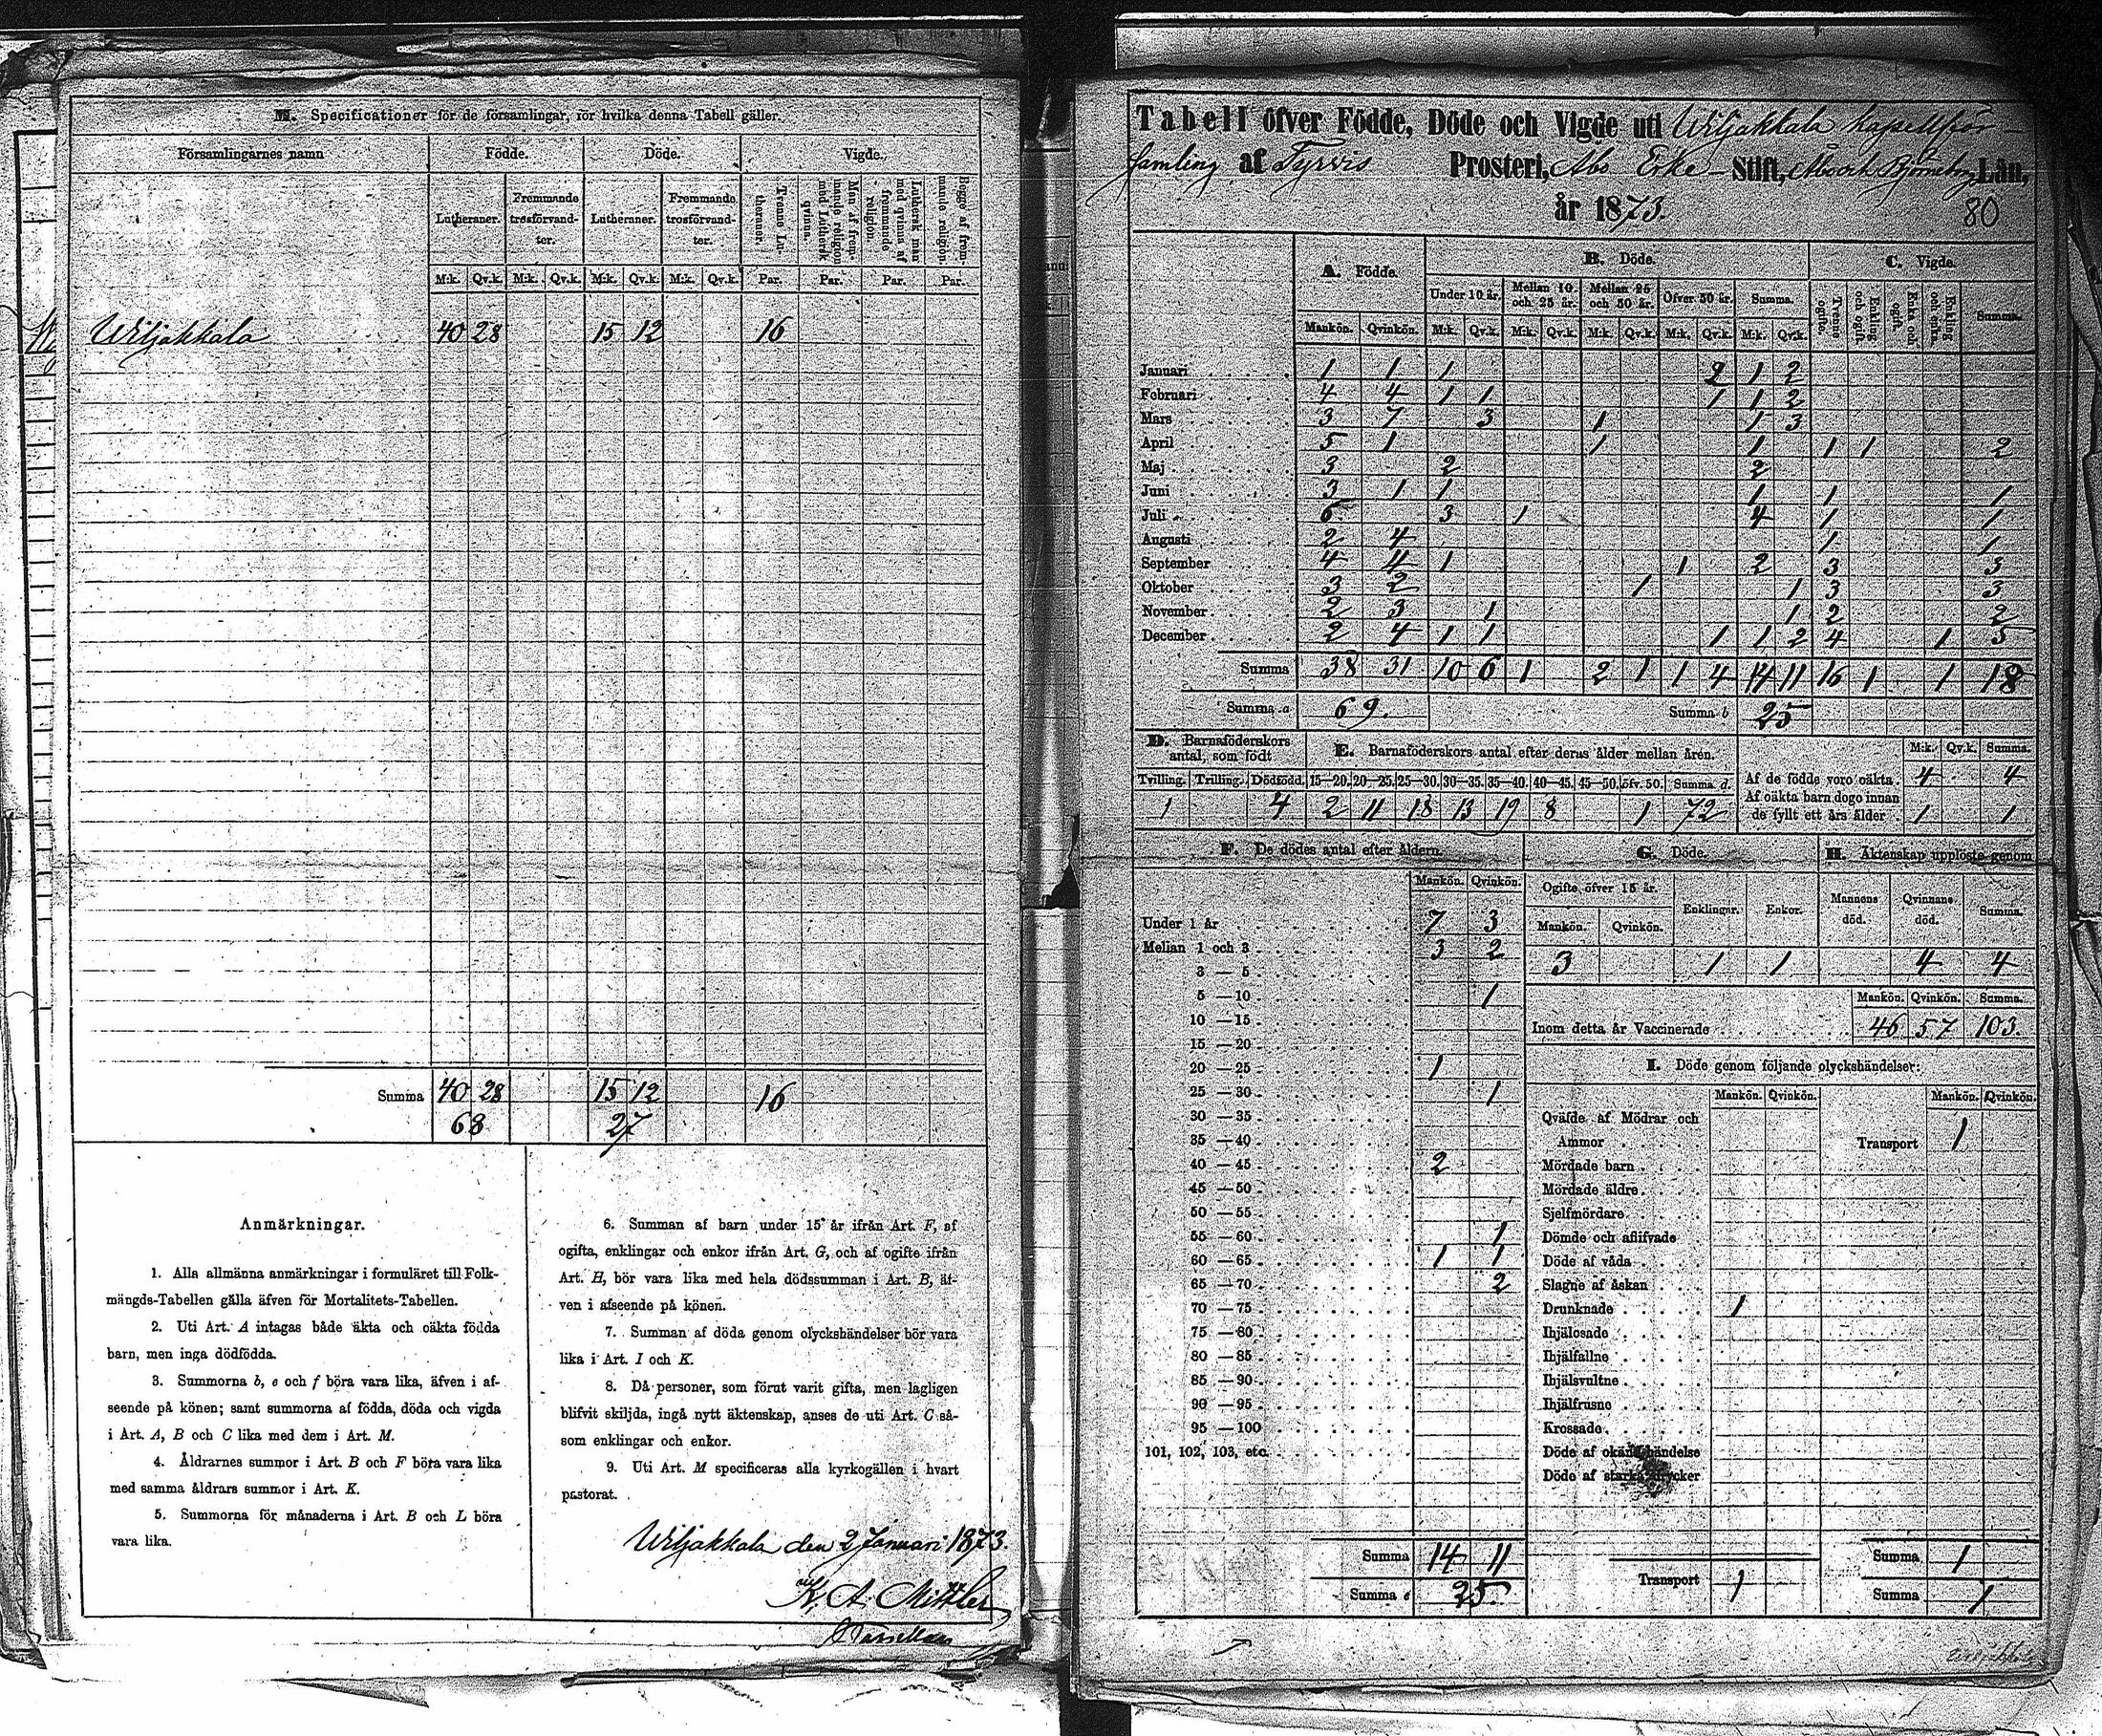 M. Specificationer för de församlingar, för hvilka denna Tabell gäller.
Församlingarnes namn Födde. Döde. Vigde.
Lutheraner. Fremmande trosförvandter. Lutheraner. Fremmande trosförvandter. Tvenne Lutheraner. Man af fremmande religion med Luthersk qvinna. Luthersk man med qvinna af fremmande religion. Begge af fremmande religion.
M:k. Qv.k. M:k. Qv.k. M:k. Qv.k. M:k. Qv.k. Par. Par. Par. Par.
Wiljakkala 40 28 15 12 16
Summa 40 28 15 12 16
68 27
Anmärkningar.
1. Alla allmänna anmärkningar i formuläret till Folk-
mängds-Tabellen gälla äfven för Mortalitets-Tabellen.
2. Uti Art. A intagas både äkta och oäkta födda
barn, men inga dödfödda.
3. Summorna b, e och f böra vara lika, äfven i af-
seende på könen; samt summorna af födda, döda och vigda
i Art. A, B och C lika med dem i Art. M.
4. Åldrarnes summor i Art. B och F böra vara lika
med samma åldrars summor i Art. K.
5. Summorna för månaderna i Art. B och L böra
vara lika.
6. Summan af barn under 15 år ifrån Art. F, af
ogifta, enklingar och enkor ifrån Art. G, och af ogifte ifrån
Art. H, bör vara lika med hela dödssumman i Art. B, äf-
ven i afseende på könen.
7. Summan af döda genom olyckshändelser bör vara
lika i Art. I och K.
8. Då personer, som förut varit gifta, men lagligen
blifvit skiljda, ingå nytt äktenskap, anses de uti Art. C så-
som enklingar och enkor.
9. Uti Art. M specificeras alla kyrkogällen i hvart
pastorat.
Wiljakkala den 2 Januari 1873.
K. A. Mittler
Tabell öfver Födde, Döde och Vigde uti Wiljakkala Kapellför-
samling af Tyrvis Prosteri, Åbo Erke- Stift, Åbo och Björneborgs Län,
år 1873.
80
A. Födde. B. Döde. C. Vigde.
Under 10 år. Mellan 10 och 25 år. Mellan 25 och 50 år. Öfver 50 år. Summa. Tvenne ogifte. Enkling och ogift. Enka och ogift. Enkling och enka. Summa.
Mankön. Qvinkön. M:k. Qv.k. M:k. Qv.k. M:k. Qv.k. M:k. Qv.k. M:k. Qv.k.
Januari 1 1 1 2 1 2
Februari 4 4 1 1 1 1 2
Mars 3 7 3 1 1 3
April 5 1 1 1 1 1 2
Maj 3 2 2
Juni 3 1 1 1 1 1
Juli 6 3 1 4 1 1
Augusti 2 4 1 1
September 4 4 1 1 2 3 3
Oktober 3 2 1 1 3 3
November 2 3 1 1 2 2
December 2 4 1 1 1 1 2 4 1 5
Summa 38 31 10 6 1 2 1 1 4 14 11 16 1 1 18
Summa a 69. Summa b 25
D. Barnaföderskors antal, som födt
Tvilling. Trilling. Dödfödd.
1 4
E. Barnaföderskors antal efter deras ålder mellan åren.
15—20. 20—25. 25—30. 30—35. 35—40. 40—45. 45—50. öfv. 50. Summa d.
2 11 18 13 19 8 1 72
M:k. Qv.k. Summa.
Af de födde voro oäkta 4 4
Af oäkta barn dogo innan
de fyllt ett års ålder 1 1
F. De dödes antal efter åldern.
Mankön. Qvinkön.
Under 1 år 7 3
Mellan 1 och 3 3 2
3 — 5
5 — 10 1
10 — 15
15 — 20
20 — 25 1
25 — 30 1
30 — 35
35 — 40
40 — 45 2
45 — 50
50 — 55
55 — 60 1
60 — 65 1 1
65 — 70 2
70 — 75
75 — 80
80 — 85
85 — 90
90 — 95
95 — 100
101, 102, 103, etc.
Summa 14 11
Summa e 25.
G. Döde.
Ogifte öfver 15 år. Enklingar. Enkor.
Mankön. Qvinkön.
3 1 1
H. Äktenskap upplöste genom
Mannens död. Qvinnans död. Summa.
4 4
Mankön. Qvinkön. Summa.
Inom detta år Vaccinerade 46 57 103.
I. Döde genom följande olyckshändelser:
Mankön. Qvinkön. Mankön. Qvinkön.
Qväfde af Mödrar och
Ammor Transport 1
Mördade barn
Mördade äldre
Sjelfmördare
Dömde och aflifvade
Döde af våda
Slagne af åskan
Drunknade 1
Ihjälosade
Ihjälfallne
Ihjälsvultne
Ihjälfrusne
Krossade
Döde af okänd händelse
Döde af starka drycker
Summa 1
Transport 1 Summa 1